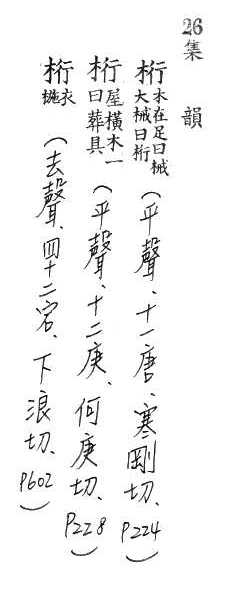 26集韻
桁木在足曰械大械曰桁(平聲、十一唐、寒剛切、P224)
桁屋橫木一曰葬具(平聲、十二庚、何庚切、P228)
桁衣椸(去聲、四十二宕、下浪切、P602)